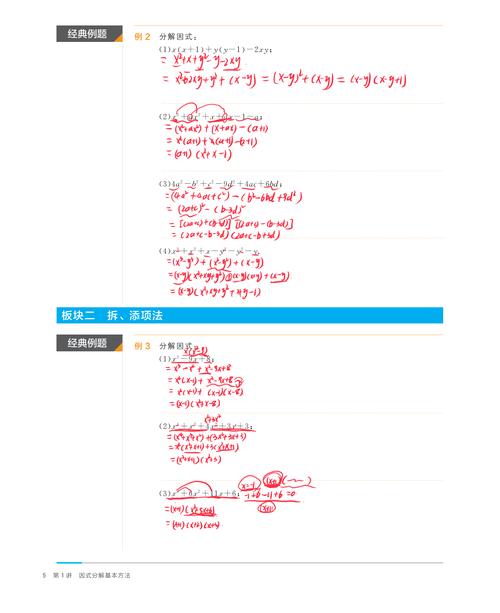 经典例题
例 2 分解因式：
(1)x(x+1)+y(y−1)−2xy;
= x²+x+y²−y−2xy
= x²−2xy+y²+(x−y) = (x−y)²+(x−y) = (x−y)(x−y+1)
= (x³+ax²)+(x+ax)−(a+1)
= x²(a+1)+x(a+1)−(a+1)
= (a+1)(x²+x−1)
(3)4a²−b²+c²−9d²+4ac+6bd;
= (4a²+4ac+c²)−(b²−6bd+9d²)
= (2a+c)²−(b−3d)²
= [(2a+c)+(b−3d)][(2a+c)−(b−3d)]
= (2a+c+b−3d)(2a+c−b+3d)
(4)x³+x²+x−y³−y²−y.
= (x³−y³)+(x²−y²)+(x−y)
= (x−y)(x²+xy+y²)+(x−y)(x+y)+(x−y)
板块二 拆、添项法
经典例题
例 3 分解因式：
(1)x³−9x+8;
= x³−x²+x²−9x+8
= x²(x−1)+x²−9x+8
= x²(x−1)+(x−1)(x−8)
= (x−1)(x²+x−8)
= (x⁴+x³+x²)+(3x²+3x+3)
= x²(x²+x+1)+3(x²+x+1)
= (x²+x+1)(x²+3)
(3)x³+6x²+11x+6;
x=−1
−1+6−11+6=0
(x+1)
= (x+1)(x²+5x+6)
= (x+1)(x+2)(x+3)
5 第 1 讲 因式分解基本方法